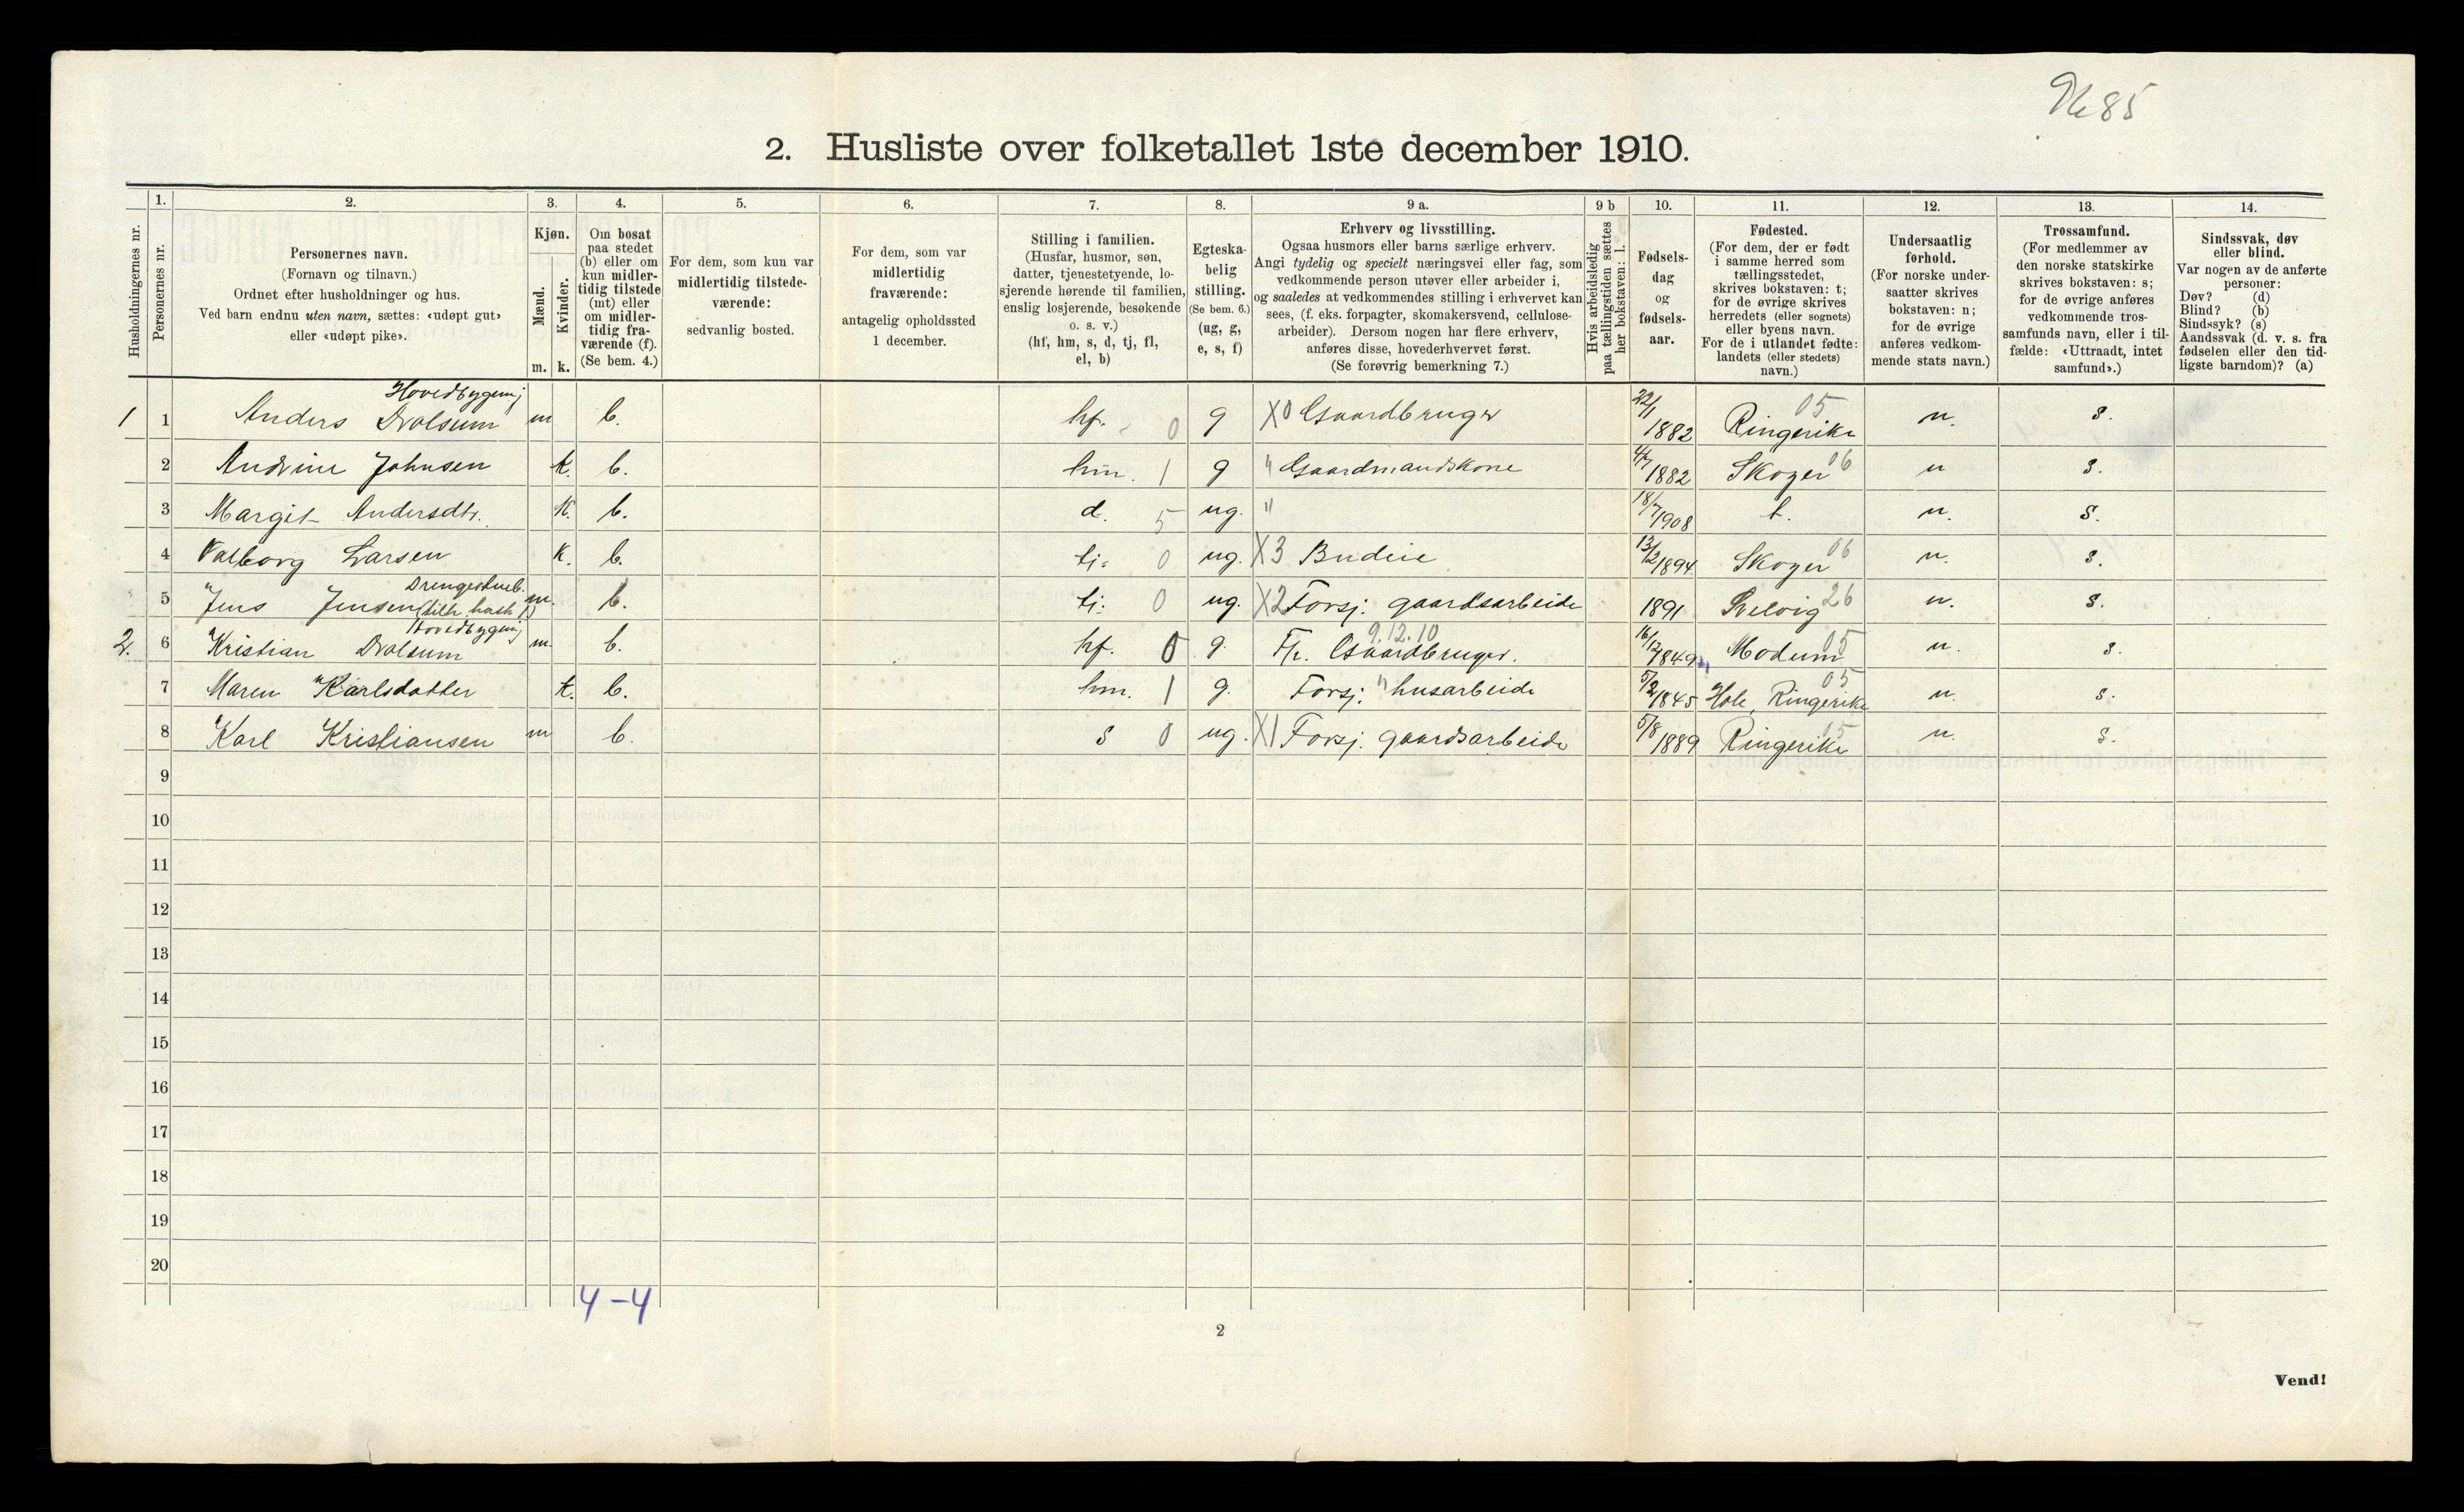 85
2. Husliste over folketallet 1ste december 1910.
Husholdningernes nr.
1.
Personernes nr.
2.
Personernes navn.
(Fornavn og tilnavn.)
Ordnet efter husholdninger og hus.
Ved barn endnu uten navn, sættes: «udøpt gut»
eller «udøpt pike».
3.
Kjøn.
Mænd.
Kvinder.
m. k.
4.
Om bosat
paa stedet
(b) eller om
kun midler-
tidig tilstede
(mt) eller
om midler-
tidig fra-
værende (f).
(Se bem. 4.)
5.
For dem, som kun var
midlertidig tilstede-
værende:
sedvanlig bosted.
6.
For dem, som var
midlertidig
fraværende:
antagelig opholdssted
1 december.
7.
Stilling i familien.
(Husfar, husmor, søn,
datter, tjenestetyende, lo-
sjerende hørende til familien,
enslig losjerende, besøkende
o. s. v.)
(hf, hm, s, d, tj, fl,
el, b)
8.
Egteska-
belig
stilling.
(Se bem. 6.)
(ug, g,
e, s, f)
9 a.
Erhverv og livsstilling.
Ogsaa husmors eller barns særlige erhverv.
Angi tydelig og specielt næringsvei eller fag, som
vedkommende person utøver eller arbeider i,
og saaledes at vedkommendes stilling i erhvervet kan
sees, (f. eks. forpagter, skomakersvend, cellulose-
arbeider). Dersom nogen har flere erhverv,
anføres disse, hovederhvervet først.
(Se forøvrig bemerkning 7.)
9 b
Hvis arbeidsledig
paa tællingstiden sættes
her bokstaven: l.
10.
Fødsels-
dag
og
fødsels-
aar.
11.
Fødested.
(For dem, der er født
i samme herred som
tællingsstedet,
skrives bokstaven: t;
for de øvrige skrives
herredets (eller sognets)
eller byens navn.
For de i utlandet fødte:
landets (eller stedets)
navn.)
12.
Undersaatlig
forhold.
(For norske under-
saatter skrives
bokstaven: n;
for de øvrige
anføres vedkom-
mende stats navn.)
13.
Trossamfund.
(For medlemmer av
den norske statskirke
skrives bokstaven: s;
for de øvrige anføres
vedkommende tros-
samfunds navn, eller i til-
fælde: «Uttraadt, intet
samfund».)
14.
Sindssvak, døv
eller blind.
Var nogen av de anførte
personer:
Døv? (d)
Blind? (b)
Sindssyk? (s)
Aandssvak (d. v. s. fra
fødselen eller den tid-
ligste barndom)? (a)
Hovedbygning
1 1 Anders m b. hf. 0 g X0 Gaardbruger 22/1 1882 Ringerike 05 n. s.
2 Andrine Johnsen k. b. hm. 1 g " Gaardmandskone 1882 Skoger 06 n s.
3 Margit Andersdtr. k. b. d. 5 ug. " 18/7 1908 t. n. s.
4 Valborg Larsen k. b. tj. 0 ug. X3 Budeie 13/2 1894 Skoger 06 n. s.
Drengestueb.
5 Jens Jensen m. b. tj. 0 ug. X2 Forsj. gaardsarbeide 1891 Svelvig 26 n. s.
Hovedbygning
9.12.10
2. 6 Kristian m. b. hf. 0 g. Fh. Gaardbruger. 16/12 1849 Modum 05 n. s.
7 Maren Karlsdatter k. b. hm. 1 g. Forsj. " husarbeide 1845 Hole, Ringerike 05 n. s.
8 Karl Kristiansen m b. s 0 ug. X1 Forsj. gaardsarbeide 5/8 1889 Ringerike 05 n. s.
9
10
11
12
13
14
15
16
17
18
19
20
4-4
2
Vend!